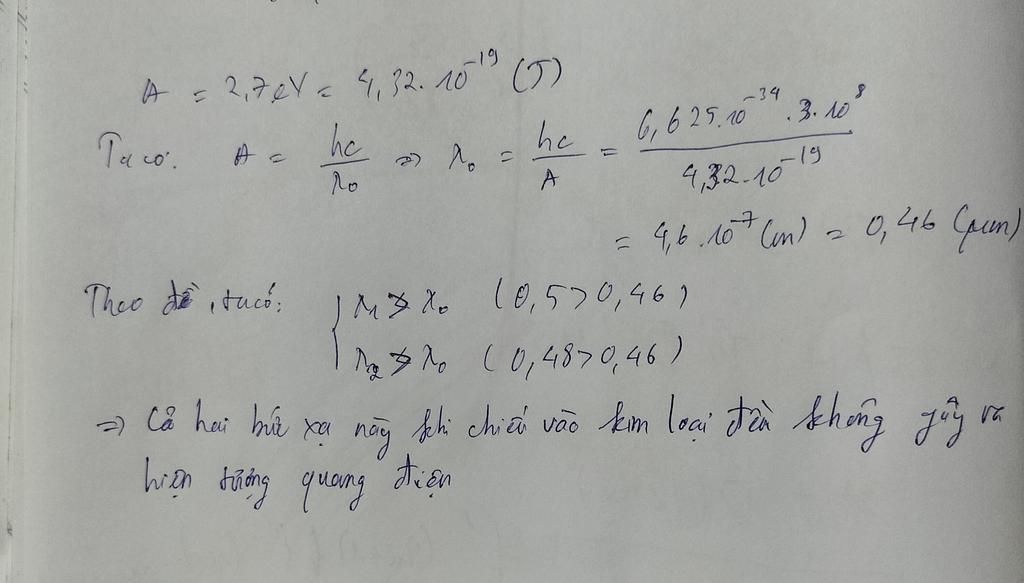 A = 2,7 eV = 4,32.10⁻¹⁹ (J)
Ta có: A = hc/λ₀ => λ₀ = hc/A = (6,625.10⁻³⁴.3.10⁸)/(4,32.10⁻¹⁹)
= 4,6.10⁻⁷ (m) = 0,46 (μm)
Theo đề, ta có: { λ₁ > λ₀ (0,5 > 0,46)
λ₂ > λ₀ (0,48 > 0,46)
=> Cả hai bức xạ này khi chiếu vào kim loại đều không gây ra
hiện tượng quang điện